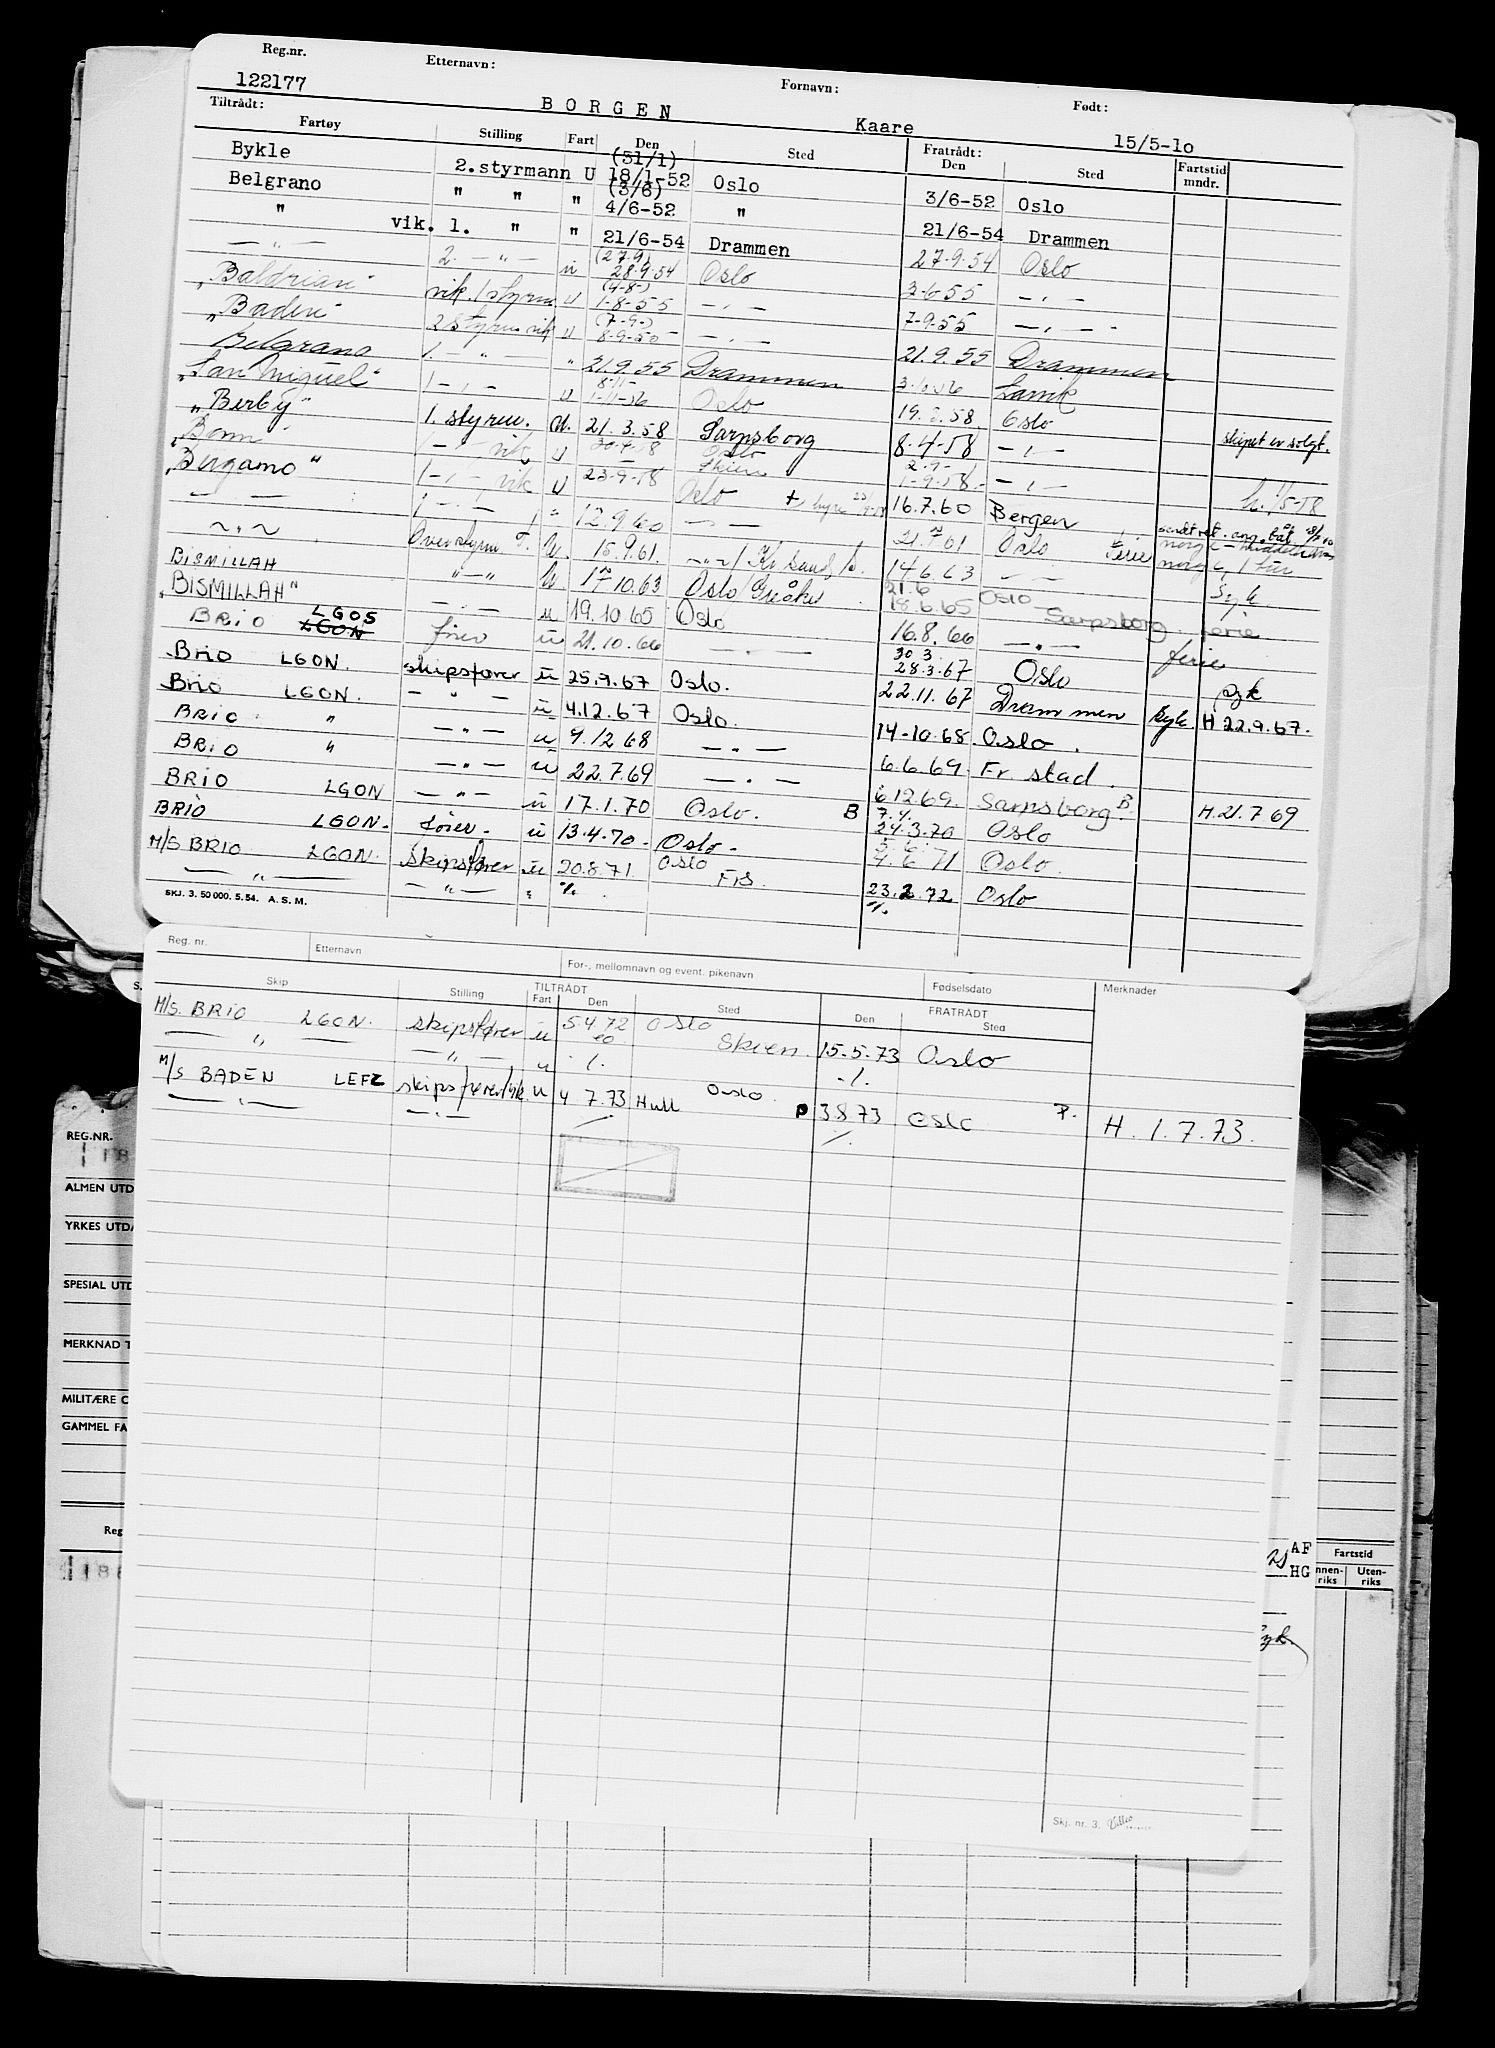 Reg.nr. Etternavn: Fornavn: Født:
122177 BORGEN Kaare 15/5-10
Tiltrådt: Fratrådt:
Fartøy Stilling Fart Den Sted Den Sted Fartstid mndr.
(31/1)
Bykle 2.styrmann U 18/1-52 Oslo 3/6-52 Oslo
(3/6)
Belgrano " " " 4/6-52 " 21/6-54 Drammen
" vik. 1. " " 21/6-54 Drammen 27.9.54 Oslo
(27.9)
— " — 2. — " — u 28.9.54 Oslo 3.6.55 — " —
(4-8-)
"Baldrian" vik. 1 styrm. u 1-8-55 — " — 7-9.55 — " —
(7-9-)
"Baden" 2 styrm vik u 8-9-55 — " — 21.9.55 Drammen
Belgrano 1. — " — " 21.9.55 Drammen Larvik
8-11-
"San Miguel" 1 — " — u 1-11-56 Oslo 19. .58. Oslo
"Berby" 1. styrm. U. 21.3.58 Sarpsborg 8.4-58 — " — skipet er solgt.
Bonn — " — vik u Oslo Skien — " —
"Bergamo" 1 — " — vik u 23-9-58 Oslo 16.7.60 Bergen
— " — 1 — " — " 12.9.60 — " — 21. .61 Oslo Ferie
~ " ~ Overstyrm. U. 15.9.61. ~ " ~ / Kr.sand, S. 14.6.63 — " — Syk.
BISMILLAH " — " U 17.10.63 Oslo/Greåker 21.6 18.6.65 Oslo Sarpsborg ferie
"BISMILLAH" — " — u 19.10.65 Oslo 16.8.66 — " — ferie
BRIO LGOS LGON fører u 21.10.66 — " — 30 3. 28.3.67 Oslo syk
Brio LGON. skipsfører u 25.9.67 Oslo. 22.11.67 Drammen syk. H 22.9.67.
Brio LGON. — " — u 4.12.67 Oslo. 14-10.68. Oslo.
BRIO " — " — u 9.12 68 — " — 6.6.69. Fr. stad.
BRIO " — " — u 22.7.69 — " — 6.12.69. Sarpsborg B. H.21.7 69
BRIO LGON — " — u 17.1.70 Oslo. B 7.4. 24.3.70 Oslo
BRIO LGON. fører. u 13.4.70. Oslo. 4.6 71 Oslo.
M/S BRIO LGON. skipsfører u 20.8.71. Oslo 23.2.72 Oslo
— " — — " — " ./. Frs. ./.
SKJ. 3. 50 000. 5.54. A.S.M.
Reg. nr. Etternavn For-, mellomnavn og event. pikenavn Fødselsdato Merknader
TILTRÅDT FRATRÅDT
Skip Stilling Fart Den Sted Den Sted
M/S. BRIO LGON. skipsfører u 5.4.72 Oslo 15.5.73 Oslo
— " — — " — " ./. Skien. ./.
M/S BADEN LEFZ skipsfører/vik. u 4 7.73 Hull Oslo. P 3 8 73 Oslo P. H. 1.7.73.
— " — — " — ./. ./.
Skj. nr. 3.
REG.NR.
ALMEN UTD
YRKES UTDA
SPESIAL UTD
MERKNAD T
MILITÆRE O
GAMMEL FA
Reg
AF
HG
Fartstid
nnen-
riks
Uten-
riks